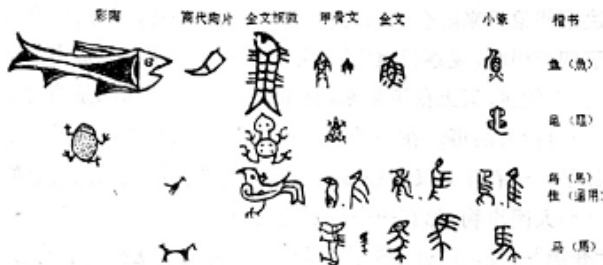 彩陶 商代陶片 金文族徽 甲骨文 金文 小篆 楷书
鱼（魚）
黾（黽）
鸟（鳥）
隹（通用）
马（馬）